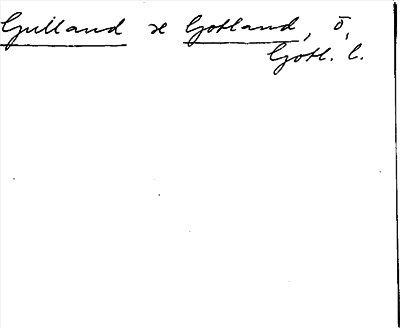 Gulland se Gotland, ö,
Gotl. l.